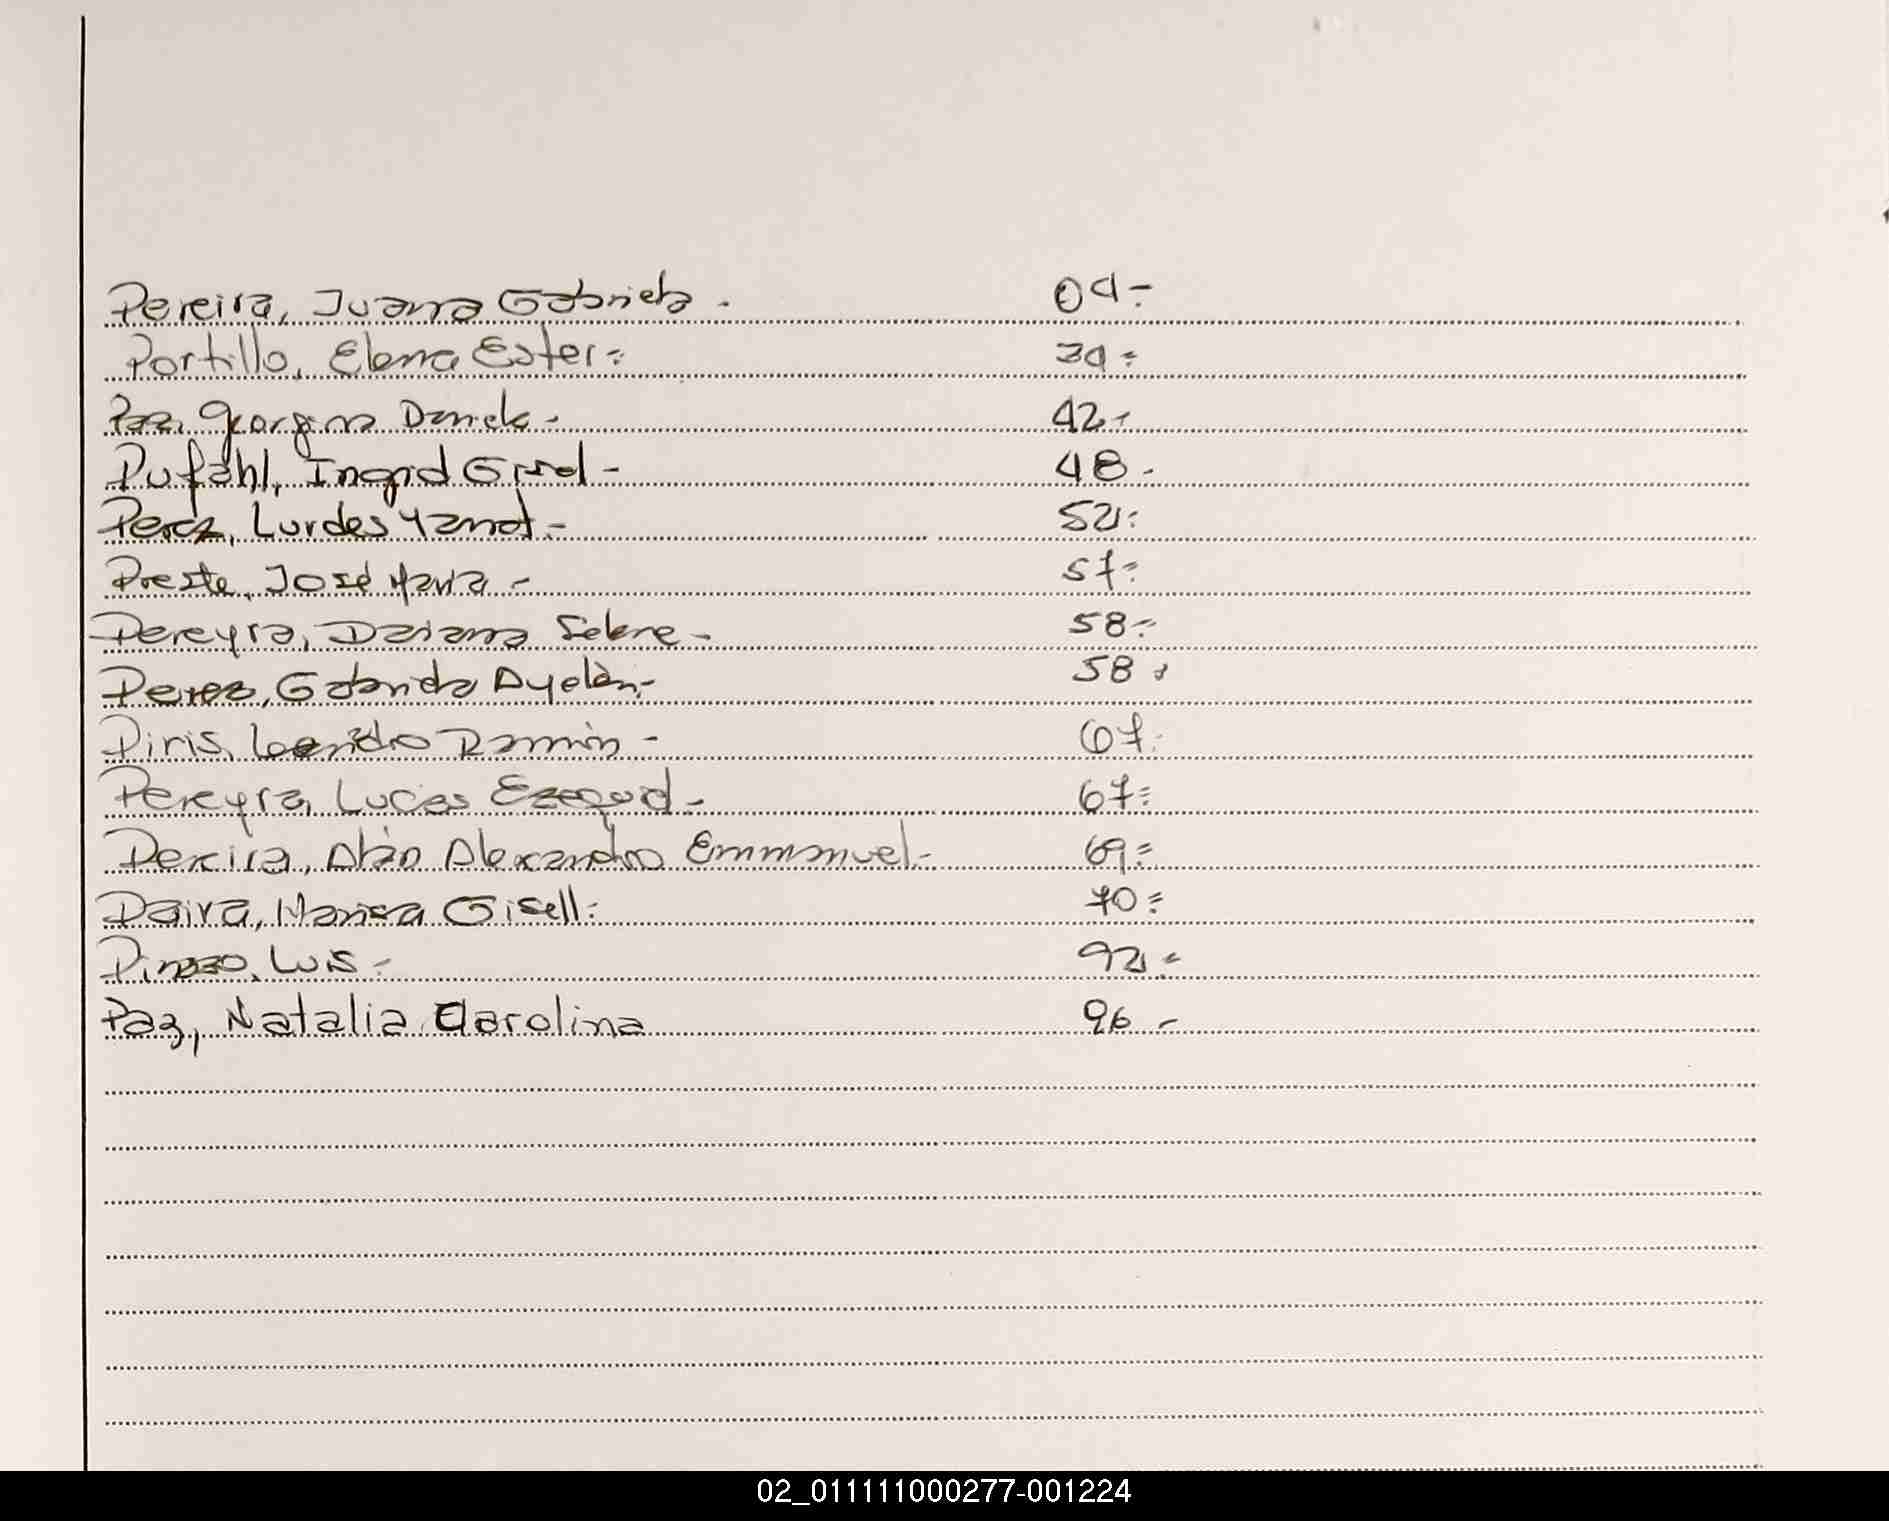 Pereira, Juana Gabriela. 04=
Portillo, Elena Ester= 39=
Paz, Georgina Daniela- 42-
Pufahl, Ingrid Gisel- 48-
Perez, Lurdes Yanet.- 52=
Preste, José Maria- 57=
Pereyra, Daiana Selene- 58=
Perez, Gabriela Ayelèn- 58
Piris, Leandro Ramón- 67-
Pereyra, Lucas Ezequiel- 67=
Pereira, Alàn Alexandro Emmanuel- 69=
Paiva, Marisa Gisell= 70=
Luis= 92=
Paz, Natalia Carolina 96-
02_011111000277-001224